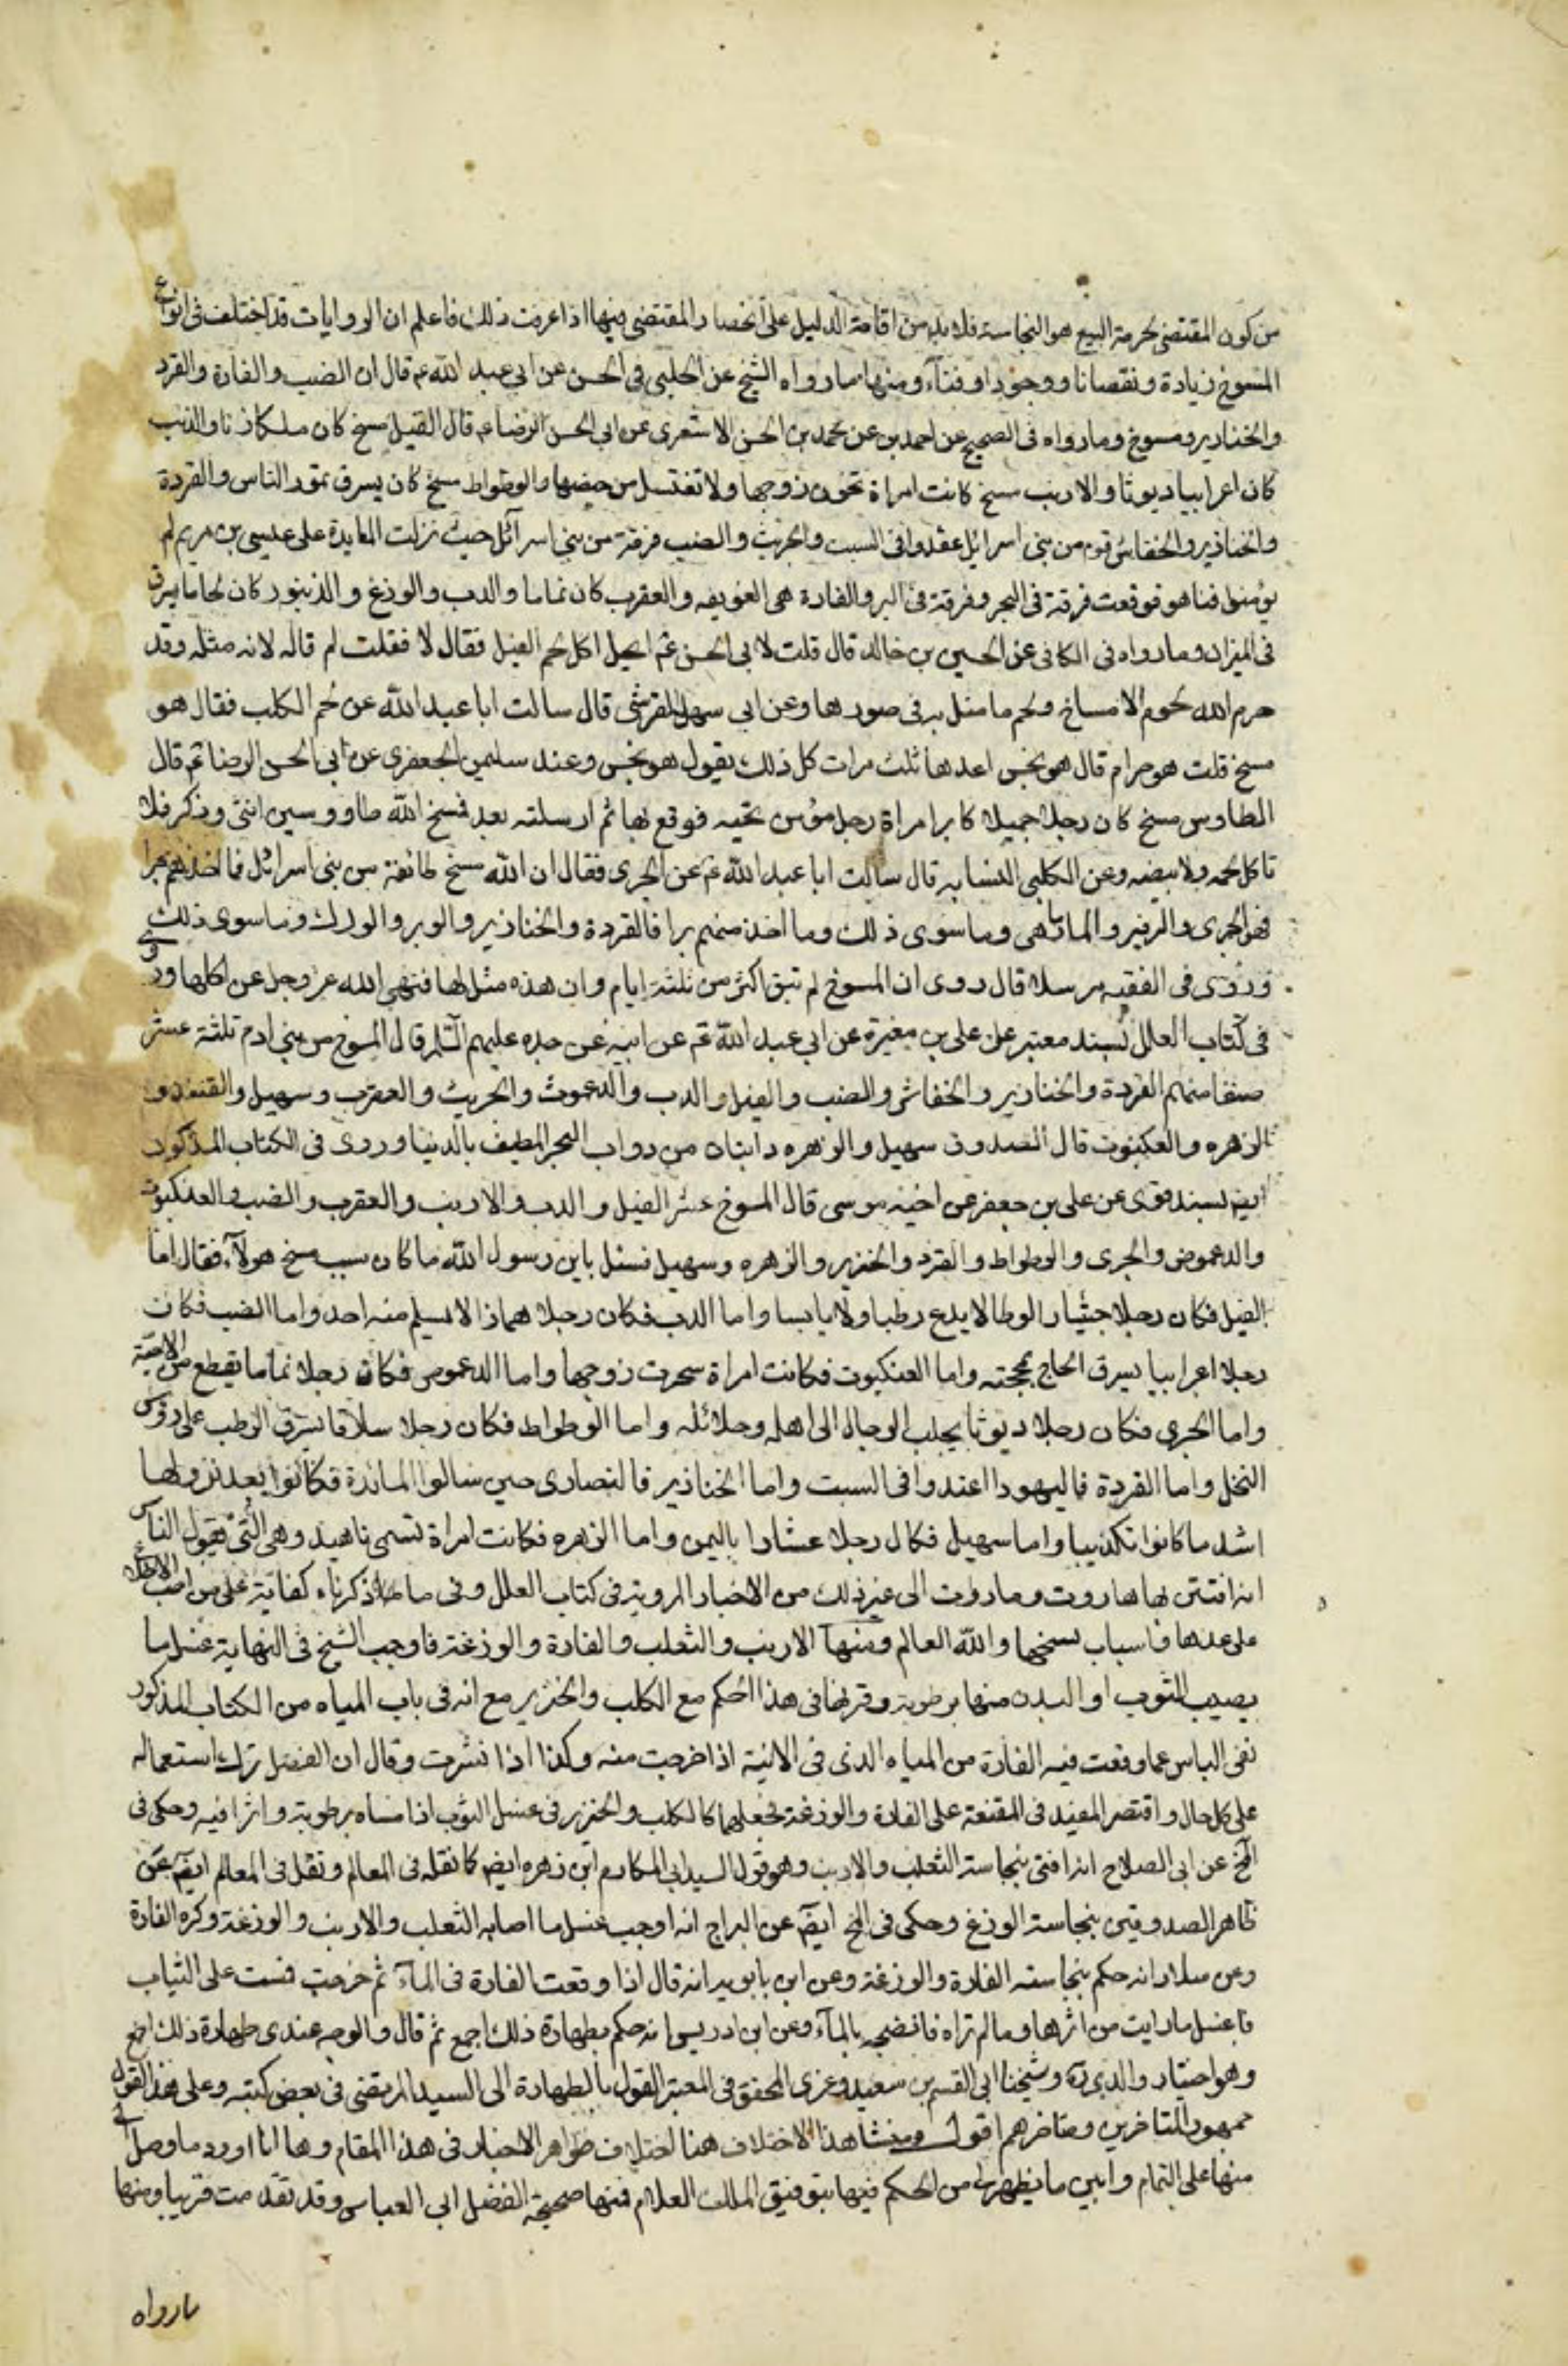 من كون المقتضى لحرمة البيع هو النجاسة فلا بد من اقامة الدليل على انحصار المقتضى فيها اذا عرفت ذلك فاعلم ان الروايات قد اختلف فى انواع
المسوخ زيادة ونقصانا ووجودا وفناء ومنها ما رواه الشيخ عن الحلبى فى الحسن عن ابى عبد الله ع قال ان الضب والفارة والقرد
والخنازير ومسوخ وما رواه فى الصحيح عن احمد بن عن محمد بن الحسن الاشعرى عن ابى الحسن الرضا ع قال الفيل مسخ كان ملكا زنا والذئب
كان اعرابيا ديوثا والارنب مسخ كانت امراة تخون زوجها ولا تغتسل من حيضها والوطواط مسخ كان يسرق تمور الناس والقردة
والخنازير والخفاش قوم من بنى اسرائيل عقدوا فى السبت والجريث والضب فرقة من بنى اسرائل حيث نزلت المايدة على عيسى بن مريم لم
يؤمنوا فتاهو فوقعت فرقة فى البحر وفرقة فى البر والفارة هى الفويسقه والعقرب كان نماما والدب والوزغ والذنبور كان لحاما يسرق
فى الميزان وما رواه فى الكافى عن الحسين بن خالد قال قلت لابى الحسن ع ايحل اكل لحم الفيل فقال لا فقلت لم قال لانه مثله وقد
حرم الله لحوم الامساخ ولحم ما مثل به فى صورها وعن ابى سهل القرشى قال سالت ابا عبد الله عن لحم الكلب فقال هو
مسخ قلت هو حرام قال هو نجس اعدها ثلث مرات كل ذلك يقول هو نجس وعند سليمن الجعفرى عن ابى الحسن الرضا ع قال
الطاوس مسخ كان رجلا جميلا كابر امراة رجل مؤمن تحبه فوقع بها ثم ارسلته بعد فمسخ الله طاووسين انثى وذكر فلا
تاكل لحمه ولا بيضه وعن الكلبى النسابه قال سالت ابا عبد الله ع عن الجرى فقال ان الله مسخ طائفة من بنى اسرائل فما اخذ منهم بحرا
فهو الجرى والزمير والمارماهى وما سوى ذلك وما اخذ منهم برا فالقردة والخنازير والوبر والورك وما سوى ذلك
وروى فى الفقيه مرسلا قال روى ان المسوخ لم تبق اكثر من ثلثة ايام وان هذه مثل لها فنهى الله عز وجل عن اكلها وروى
فى كتاب العلل بسند معتبر عن على بن مغيرة عن ابى عبد الله ع عن ابيه عن جده عليهم السلم قال المسوخ من بنى ادم ثلثة عشر
صنفا منهم القردة والخنازير والخفاش والضب والفيل والدب والدعموث والجريث والعقرب وسهيل والقنفذ و
الزهره والعكبوت قال الصدوق سهيل والزهره دابتان من دواب البحر المطيف بالدنيا وروى فى الكتاب المذكور
ايضا بسند قوى عن على بن جعفر عن اخيه موسى قال المسوخ عشر الفيل والدب والارنب والعقرب والضب والعنكبوت
والدعموص والجرى والوطواط والقرد والخنزير والزهره وسهيل فسئل يابن رسول الله ما كان سبب مسخ هولاء فقال اما
الفيل فكان رجلا جبارا لوطا لا يدع رطبا ولا يابسا واما الدب فكان رجلا همازا لا يسلم منه احد واما الضب فكان
رجلا اعرابيا يسرق الحاج بمحجنه واما العنكبوت فكانت امراة سحرت زوجها واما الدعموص فكان رجلا نماما يقطع بين الاحبة
واما الجرى فكان رجلا ديوثا يجلب الرجال الى اهله وحلائله واما الوطواط فكان رجلا سلاقا يسرق الرطب على رؤس
النخل واما القردة فاليهودا اعتدوا فى السبت واما الخنازير فالنصارى حين سالوا المائدة فكانوا بعد نزولها
اشد ما كانوا تكذيبا واما سهيل فكان رجلا عشارا باليمن واما الزهره فكانت امراة تسمى ناهيد وهى التى تقول الناس
انه افتتن بها هاروت وماروت الى غير ذلك من الاخبار المروية فى كتاب العلل وفى ما ذكرناه كفاية على من احب الاطلاع
على عدها واسباب مسخها والله العالم ومنها الارنب والثعلب والفارة والوزغة فاوجب الشيخ فى النهاية غسل ما
يصيب الثوب او البدن منها برطوبة وقرنها فى هذا الحكم مع الكلب والخنزير مع انه فى باب المياه من الكتاب المذكور
نفى الباس عما وقعت فيه الفارة من المياه الذى فى الانية اذا خرجت منه وكذا اذا شربت وقال ان الفضل ترك استعماله
على كل حال واقتصر المفيد فى المقنعة على الفارة والوزغة فجعلهما كالكلب والخنزير فى غسل الثوب اذا مساه برطوبة واثرا فيه وحكى فى
المخ عن ابى الصلاح انه افتى بنجاسة الثعلب والارنب وهو قول السيد ابى المكارم ابن زهره ايضا كما نقله فى المعالم ونقل فى المعالم ايضا عن
ظاهر الصدوقين بنجاسة الوزغ وحكى فى المخ ايضا عن البراج انه اوجب غسل ما اصابه الثعلب والارنب والوزغة وكره الفارة
وعن سلار انه حكم بنجاسة الفارة والوزغة وعن ابن بابويه انه قال اذا وقعت الفارة فى الماء ثم خرجت فمست على الثياب
فاغسل ما رايت من اثرها وما لم تراه فانضحه بالماء وعن ابن ادريس انه حكم بطهارة ذلك اجمع ثم قال والوجه عندى طهارة ذلك اجمع
وهو اختيار والدى ره وشيخنا ابى القسم بن سعيد وعزى المحقق فى المعتبر القول بالطهارة الى السيد المرتضى فى بعض كتبه وعلى هذا القول
جمهور المتاخرين ومتاخرهم اقول ومنشا هذا الاختلاف هنا اختلاف ظواهر الاخبار فى هذا المقام وها انا اورد ما وصل الى
منها على التمام وابين ما يظهر لى من الحكم فيها بتوفيق الملك العلام فمنها صحيحة الفضل ابى العباس وقد تقدمت قريبا ومنها
مارواه